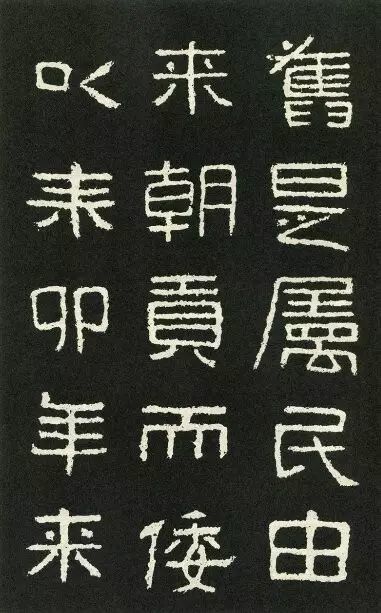 舊是属民由
来朝貢而倭
以辛卯年来